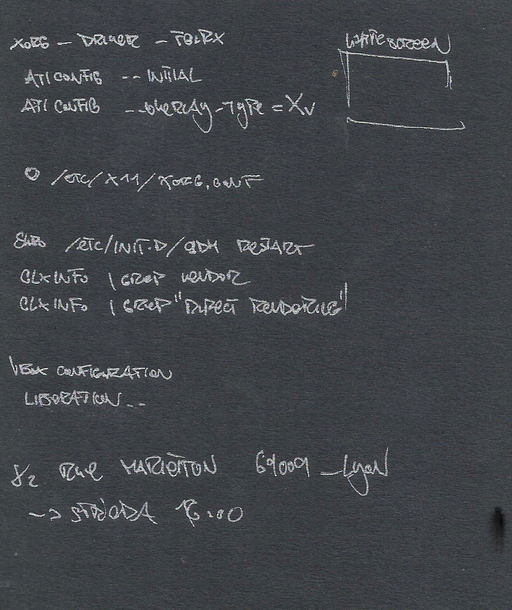 XORG - DRIVER - FGLRX
WHITE SCREEN
ATICONFIG -- INITIAL
ATICONFIG --OVERLAY-TYPE = XV
/ETC/X11/XORG.CONF
SUDO /ETC/INIT.D/GDM RESTART
GLXINFO | GREP VENDOR
GLXINFO | GREP "DIRECT RENDERING"
VBOX CONFIGURATION
LIBERATION...
RUE MARIETTON 69009 - Lyon
-> STREDA